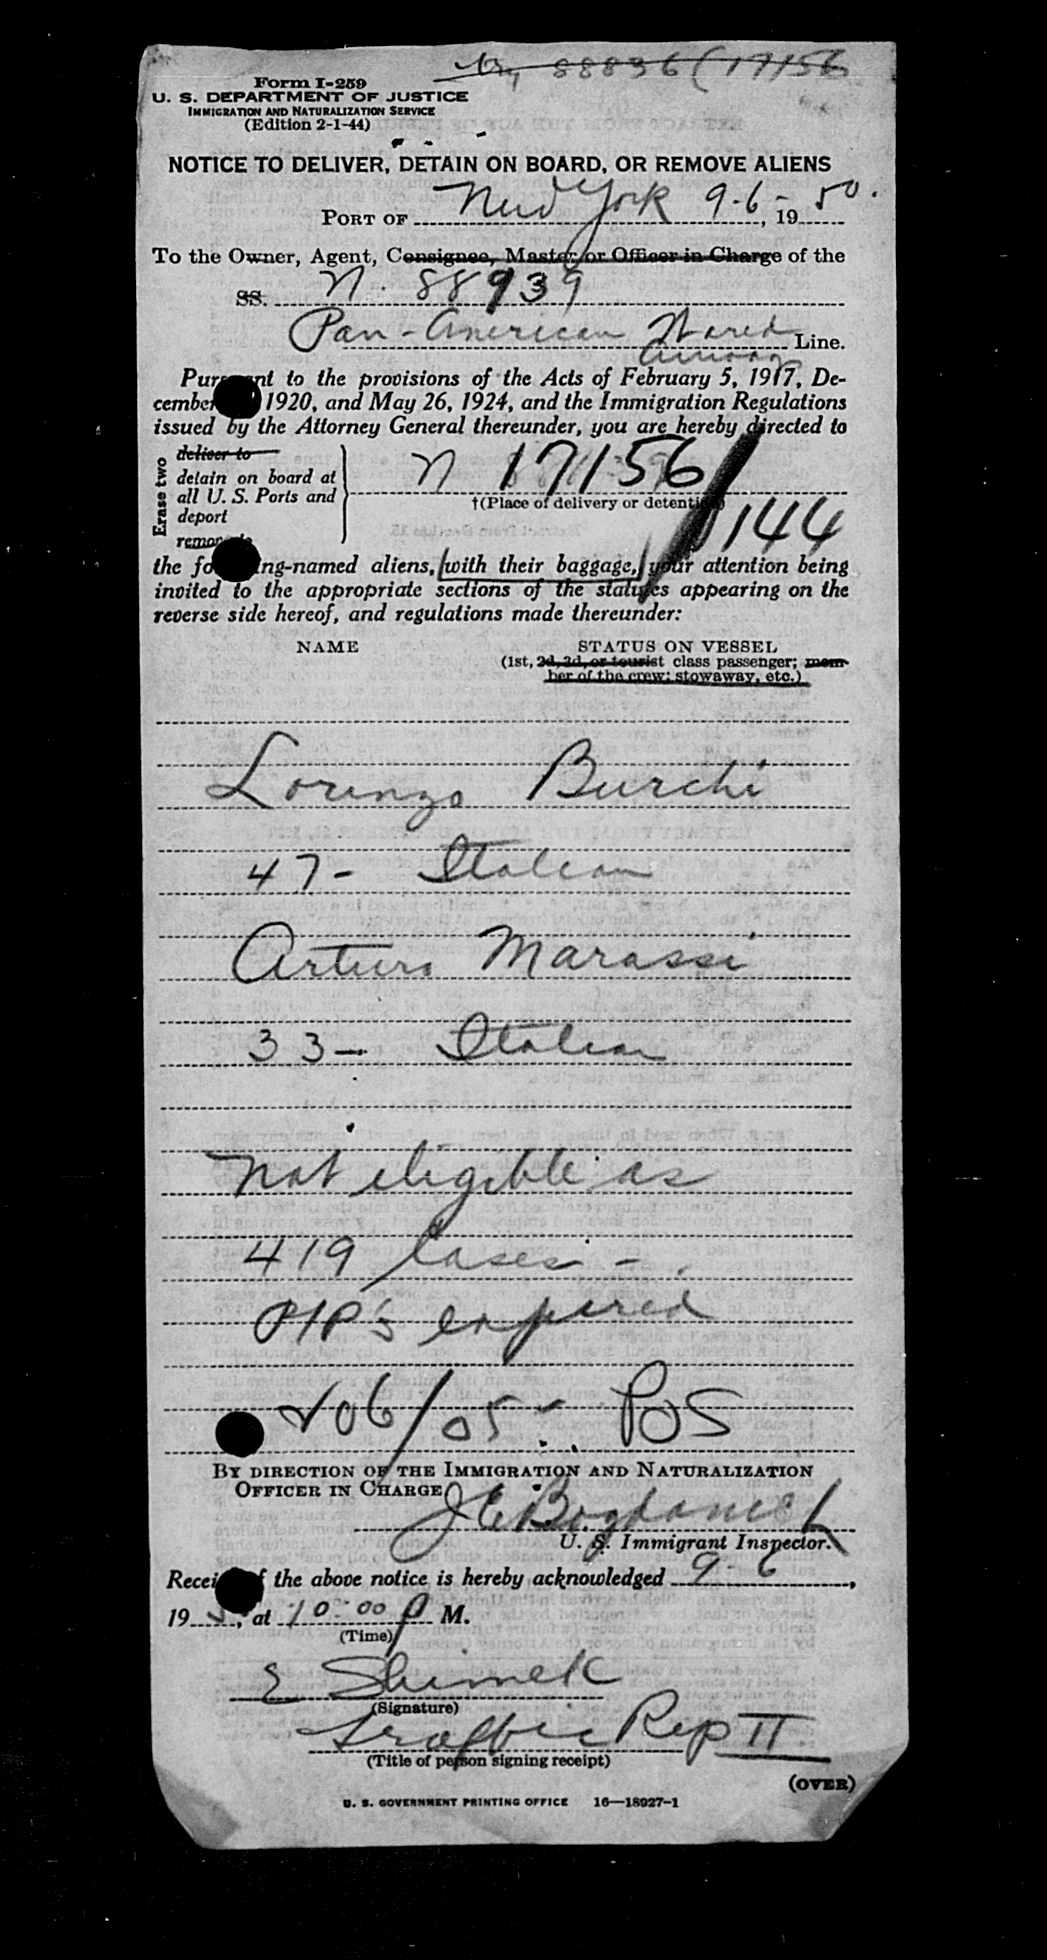 88836 (17156
Form I-259
U. S. DEPARTMENT OF JUSTICE
IMMIGRATION AND NATURALIZATION SERVICE
(Edition 2-1-44)
NOTICE TO DELIVER, DETAIN ON BOARD, OR REMOVE ALIENS
PORT OF New York 9-6-, 1950.
To the Owner, Agent, Consignee, Master, or Officer in Charge of the
SS. N. 88939
Pan-American World Line.
Airways
Pursuant to the provisions of the Acts of February 5, 1917, De-
cember 1920, and May 26, 1924, and the Immigration Regulations
issued by the Attorney General thereunder, you are hereby directed to
Erase two
deliver to
detain on board at
all U. S. Ports and
deport
remove to
N 17156
†(Place of delivery or detention)
144
the following-named aliens, (with their baggage,) your attention being
invited to the appropriate sections of the statutes appearing on the
reverse side hereof, and regulations made thereunder:
NAME STATUS ON VESSEL
(1st, 2d, 3d, or tourist class passenger; mem-
ber of the crew; stowaway, etc.)
Lorenzo Burchi
47- Italian
Arturo Marassi
33- Italian
not eligible as
419 Cases -
PIP's expired
206/05 POS
BY DIRECTION OF THE IMMIGRATION AND NATURALIZATION
OFFICER IN CHARGE
J C Bogdanich
U. S. Immigrant Inspector.
Receipt of the above notice is hereby acknowledged 9-6,
195, at 10:00 P M.
(Time)
E Shimek
(Signature)
Traffic Rep II
(Title of person signing receipt)
(OVER)
U. S. GOVERNMENT PRINTING OFFICE 16—18927-1